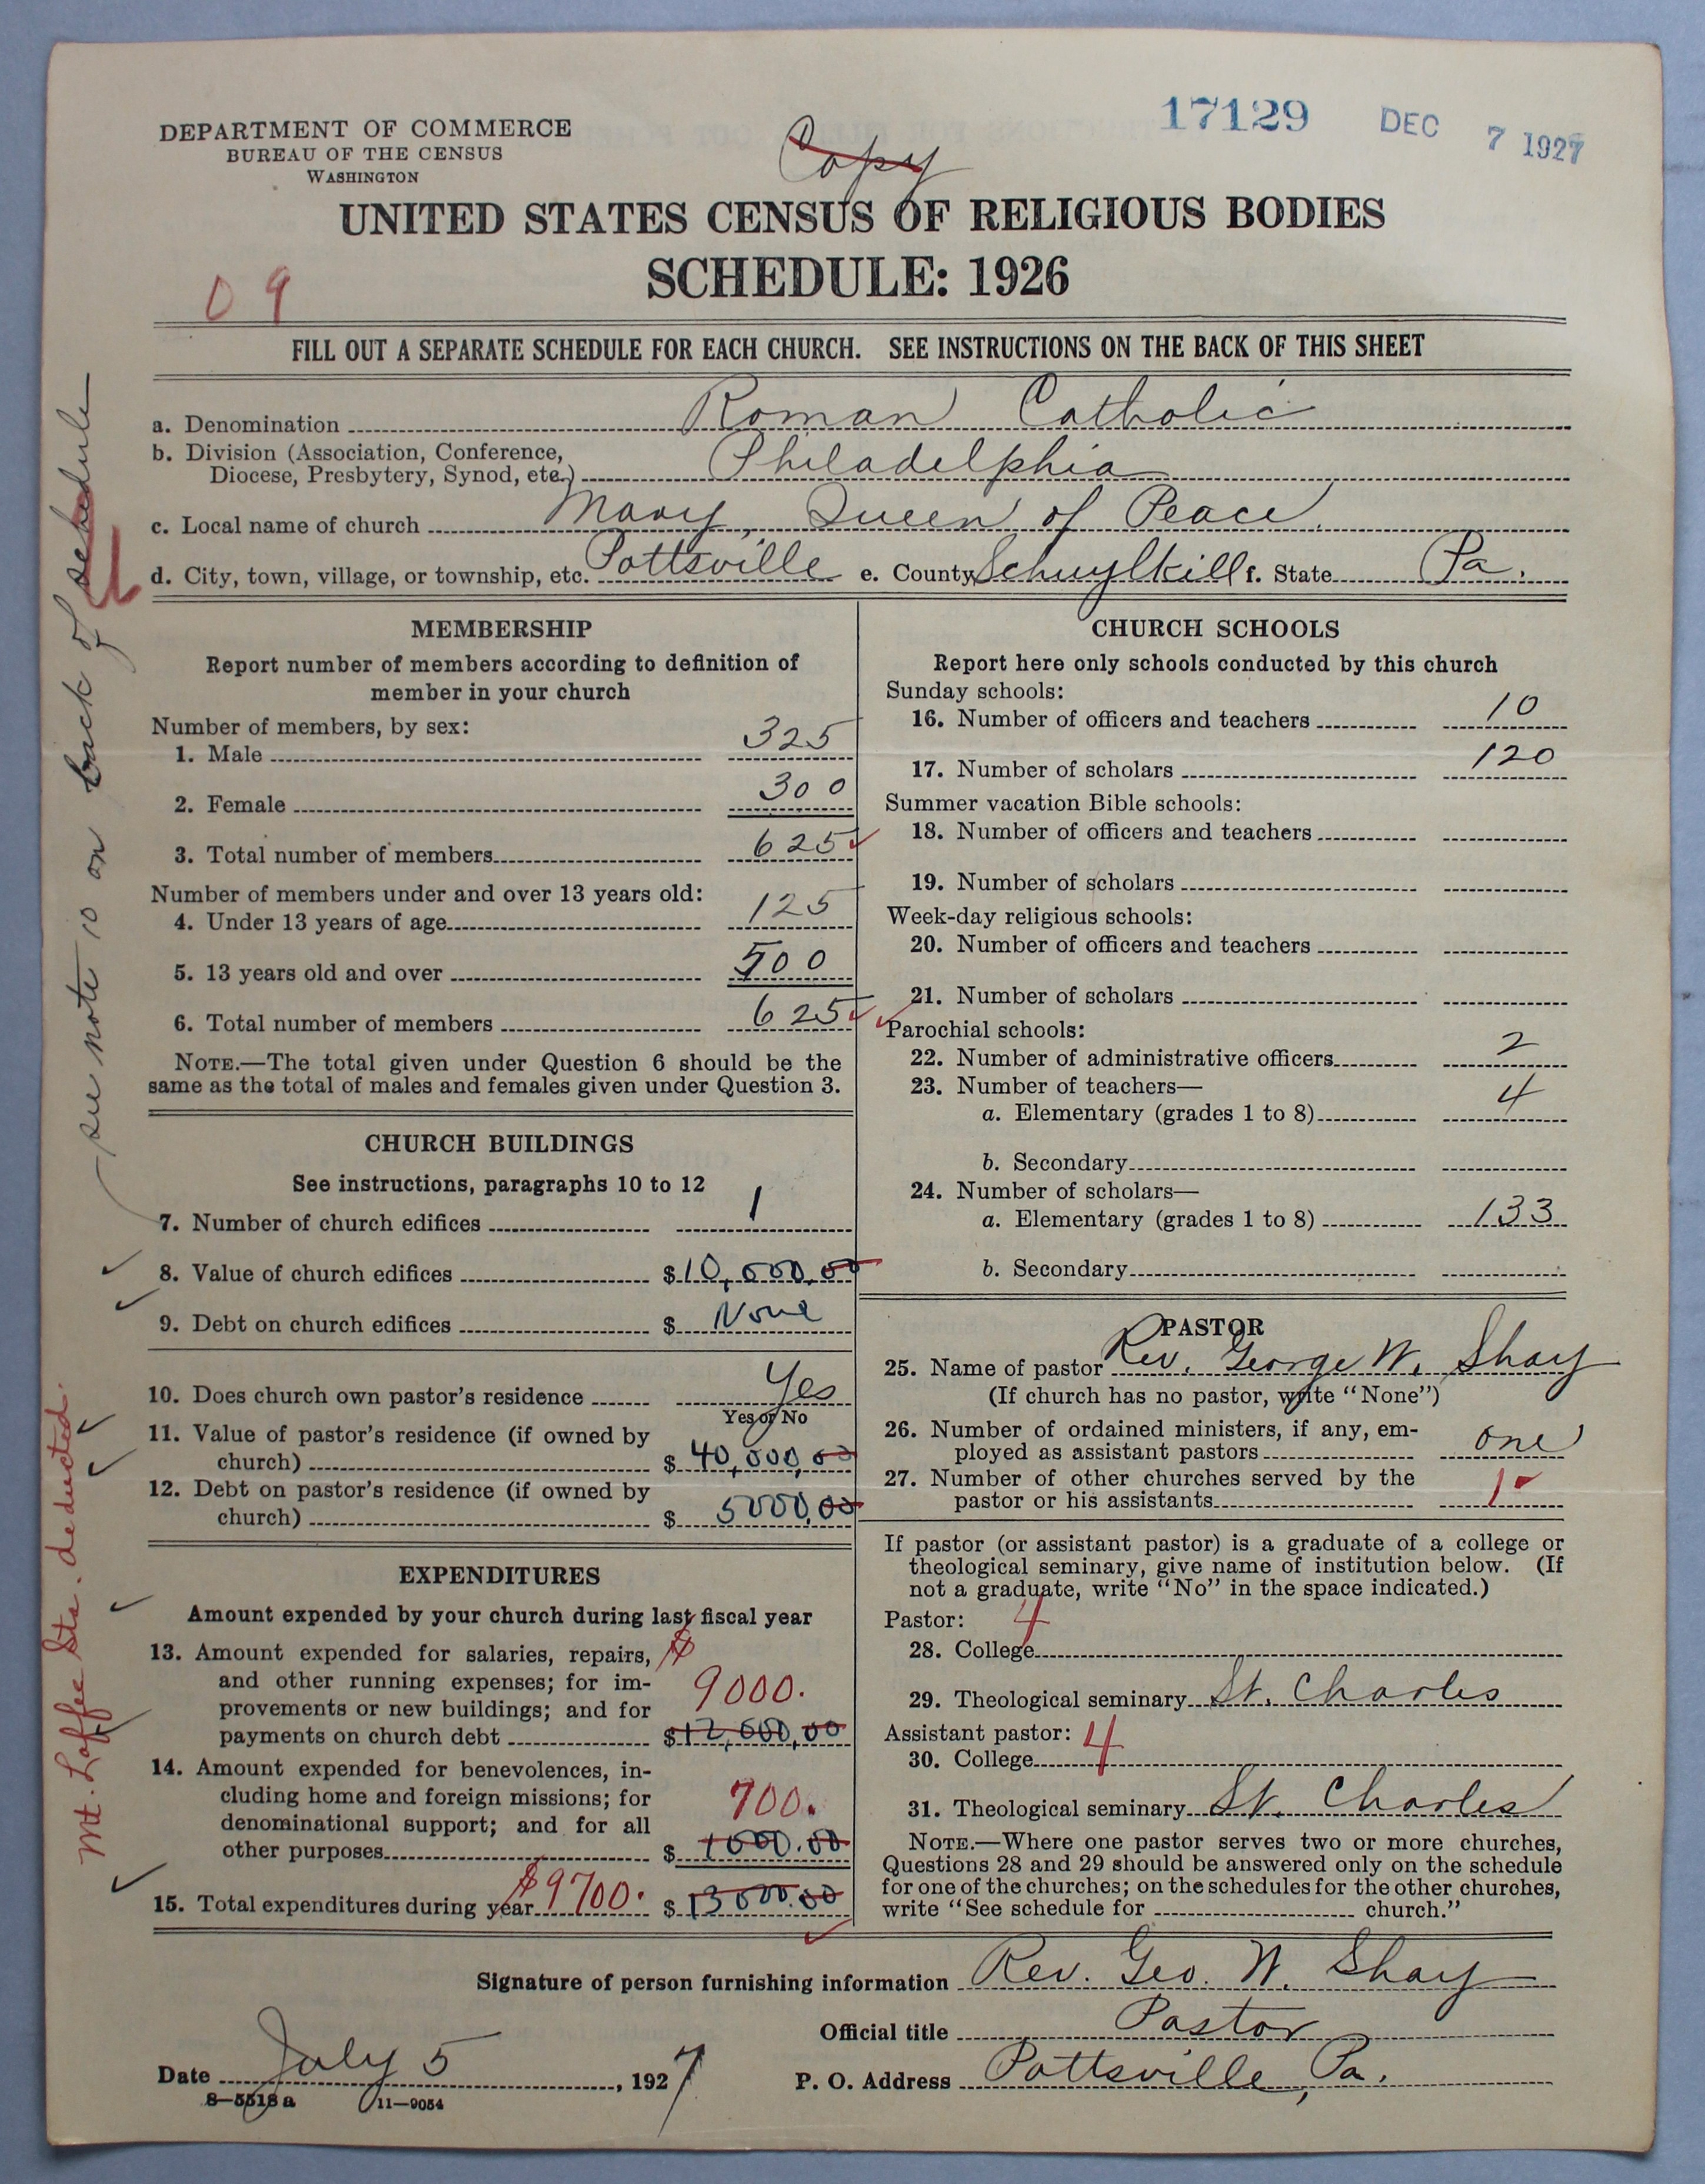 17129 DEC 7 1927
DEPARTMENT OF COMMERCE
BUREAU OF THE CENSUS
WASHINGTON
Copy
UNITED STATES CENSUS OF RELIGIOUS BODIES
SCHEDULE: 1926
09
FILL OUT A SEPARATE SCHEDULE FOR EACH CHURCH. SEE INSTRUCTIONS ON THE BACK OF THIS SHEET
a. Denomination Roman Catholic
b. Division (Association, Conference,
Diocese, Presbytery, Synod, etc.) Philadelphia
c. Local name of church Mary, Queen of Peace.
d. City, town, village, or township, etc. Pottsville e. County Schuylkill f. State Pa.
see note 10 on back of schedule
MEMBERSHIP
Report number of members according to definition of
member in your church
Number of members, by sex:
1. Male 325
2. Female 300
3. Total number of members 625
Number of members under and over 13 years old:
4. Under 13 years of age 125
5. 13 years old and over 500
6. Total number of members 625
NOTE.—The total given under Question 6 should be the
same as the total of males and females given under Question 3.
CHURCH BUILDINGS
See instructions, paragraphs 10 to 12
7. Number of church edifices 1
8. Value of church edifices $10,000.00
9. Debt on church edifices $ None
10. Does church own pastor's residence Yes
Yes or No
11. Value of pastor's residence (if owned by
church) $ 40,000,00
12. Debt on pastor's residence (if owned by
church) $ 5000,00
Mt. Laffee Sta. deducted.
EXPENDITURES
Amount expended by your church during last fiscal year
13. Amount expended for salaries, repairs, $
and other running expenses; for im- 9000.
provements or new buildings; and for
payments on church debt $12,000,00
14. Amount expended for benevolences, in-
cluding home and foreign missions; for 700.
denominational support; and for all
other purposes $ 1000.00
15. Total expenditures during year $9700. $ 13000.00
CHURCH SCHOOLS
Report here only schools conducted by this church
Sunday schools:
16. Number of officers and teachers 10
17. Number of scholars 120
Summer vacation Bible schools:
18. Number of officers and teachers
19. Number of scholars
Week-day religious schools:
20. Number of officers and teachers
21. Number of scholars
Parochial schools:
22. Number of administrative officers 2
23. Number of teachers—
a. Elementary (grades 1 to 8) 4
b. Secondary
24. Number of scholars—
a. Elementary (grades 1 to 8) 133
b. Secondary
PASTOR
25. Name of pastor Rev. George W. Shay
(If church has no pastor, write "None")
26. Number of ordained ministers, if any, em-
ployed as assistant pastors one
27. Number of other churches served by the
pastor or his assistants 1
If pastor (or assistant pastor) is a graduate of a college or
theological seminary, give name of institution below. (If
not a graduate, write "No" in the space indicated.)
Pastor: 4
28. College
29. Theological seminary St. Charles
Assistant pastor: 4
30. College
31. Theological seminary St. Charles
NOTE.—Where one pastor serves two or more churches,
Questions 28 and 29 should be answered only on the schedule
for one of the churches; on the schedules for the other churches,
write "See schedule for church."
Signature of person furnishing information Rev. Geo. W. Shay
Official title Pastor
Date July 5, 1927 P. O. Address Pottsville, Pa.
8—5518a 11—9054